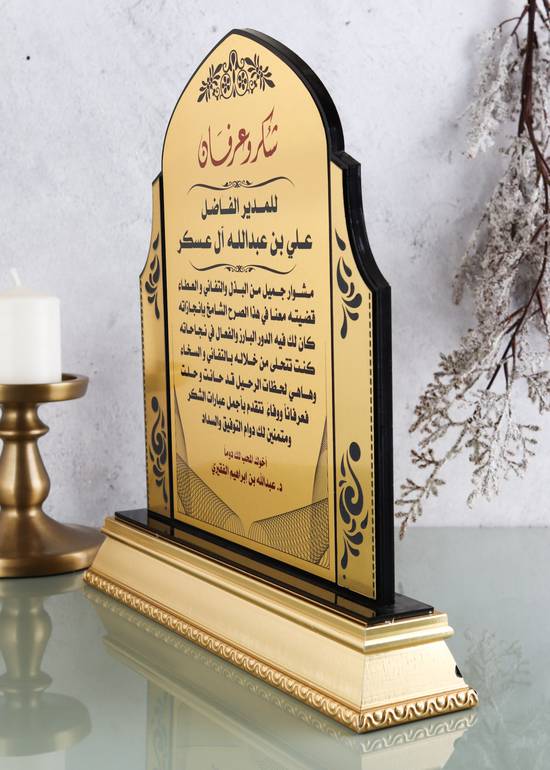 شكر وعرفان
للمدير الفاضل
علي بن عبدالله آل عسكر
مشوار جميل من البذل والتفاني و العطاء
قضيته معنا في هذا الصرح الشامخ بانجازاته
كان لك فيه الدور البارز والفعال في نجاحاته
كنت تتحلى من خلاله بالتفاني و السخاء
وهاهي لحظات الرحيل قد حانت و حلت
فعرفاناً ووفاء نتقدم بأجمل عبارات الشكر
ومتمنين لك دوام التوفيق والسداد
أخوك المحب لك دوما
د. عبدالله بن ابراهيم